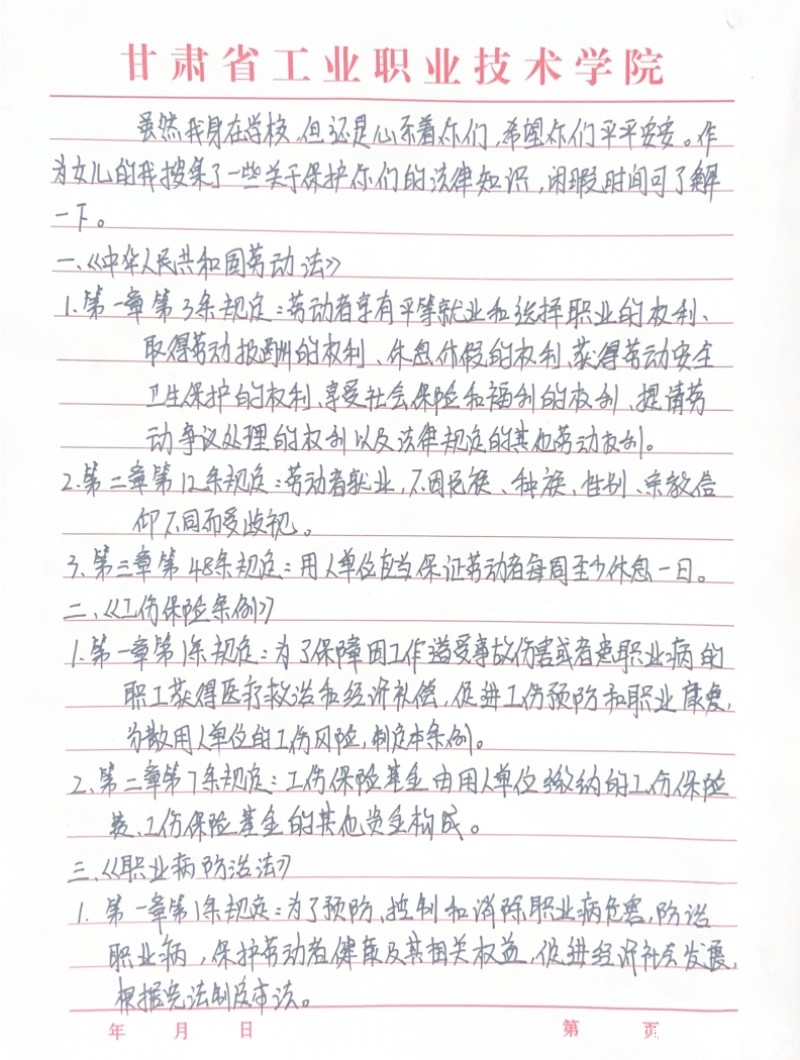 甘肃省工业职业技术学院
虽然我身在学校,但还是心系着你们,希望你们平平安安。作
为女儿的我搜集了一些关于保护你们的法律知识,闲暇时间可了解
一下。
一、《中华人民共和国劳动法》
1.第一章第3条规定:劳动者享有平等就业和选择职业的权利、
取得劳动报酬的权利、休息休假的权利、获得劳动安全
卫生保护的权利、享受社会保险和福利的权利、提请劳
动争议处理的权利以及法律规定的其他劳动权利。
2.第二章第12条规定:劳动者就业,不因民族、种族、性别、宗教信
仰不同而受歧视。
3.第三章第48条规定:用人单位应当保证劳动者每周至少休息一日。
二、《工伤保险条例》
1.第一章第1条规定:为了保障因工作遭受事故伤害或者患职业病的
职工获得医疗救治和经济补偿,促进工伤预防和职业康复,
分散用人单位的工伤风险,制定本条例。
2.第二章第7条规定:工伤保险基金由用人单位缴纳的工伤保险
费、工伤保险基金的其他资金构成。
三、《职业病防治法》
1.第一章第1条规定:为了预防、控制和消除职业病危害,防治
职业病,保护劳动者健康及其相关权益,促进经济社会发展,
根据宪法制定本法。
年 月 日 第 页